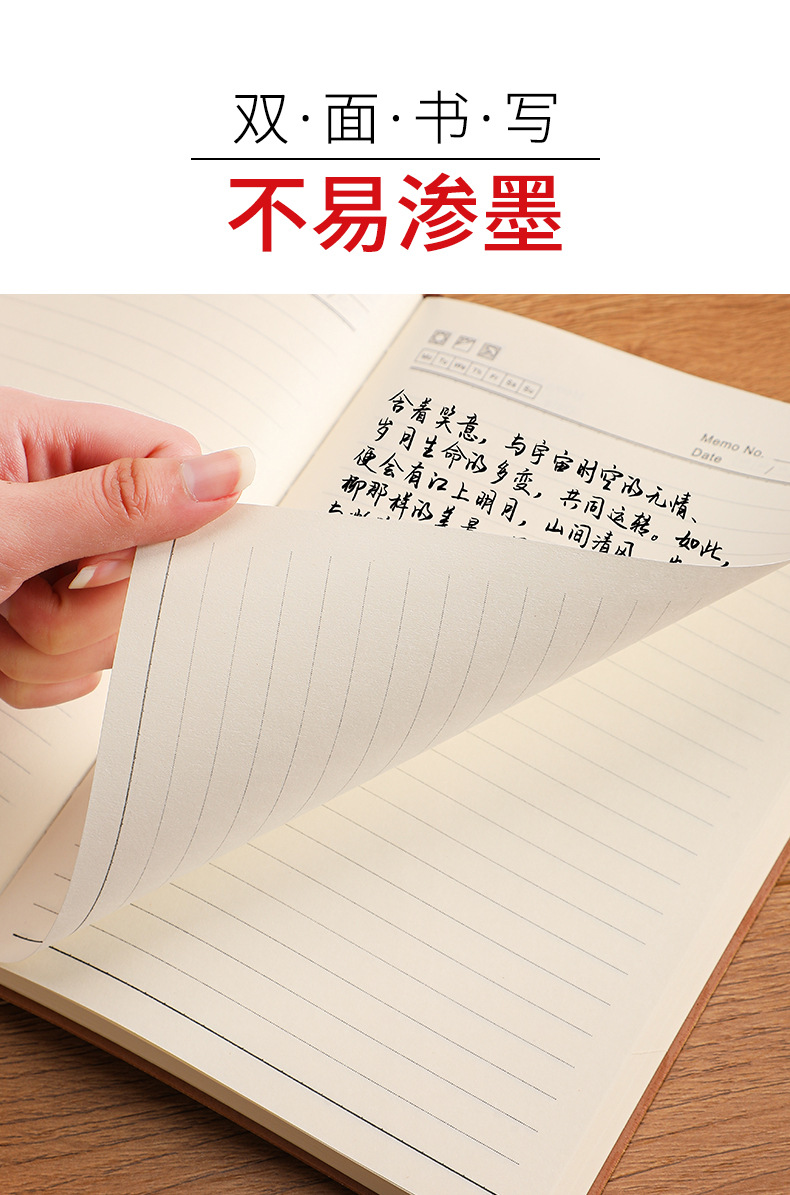 双·面·书·写
不易渗墨
Mo Tu We Th Fr Sa Su
Memo No.
Date /
含着笑意，与宇宙时空的无情、
岁月生命的多变，共同运转。如此，
便会有江上明月，山间清风，
柳那样的美景